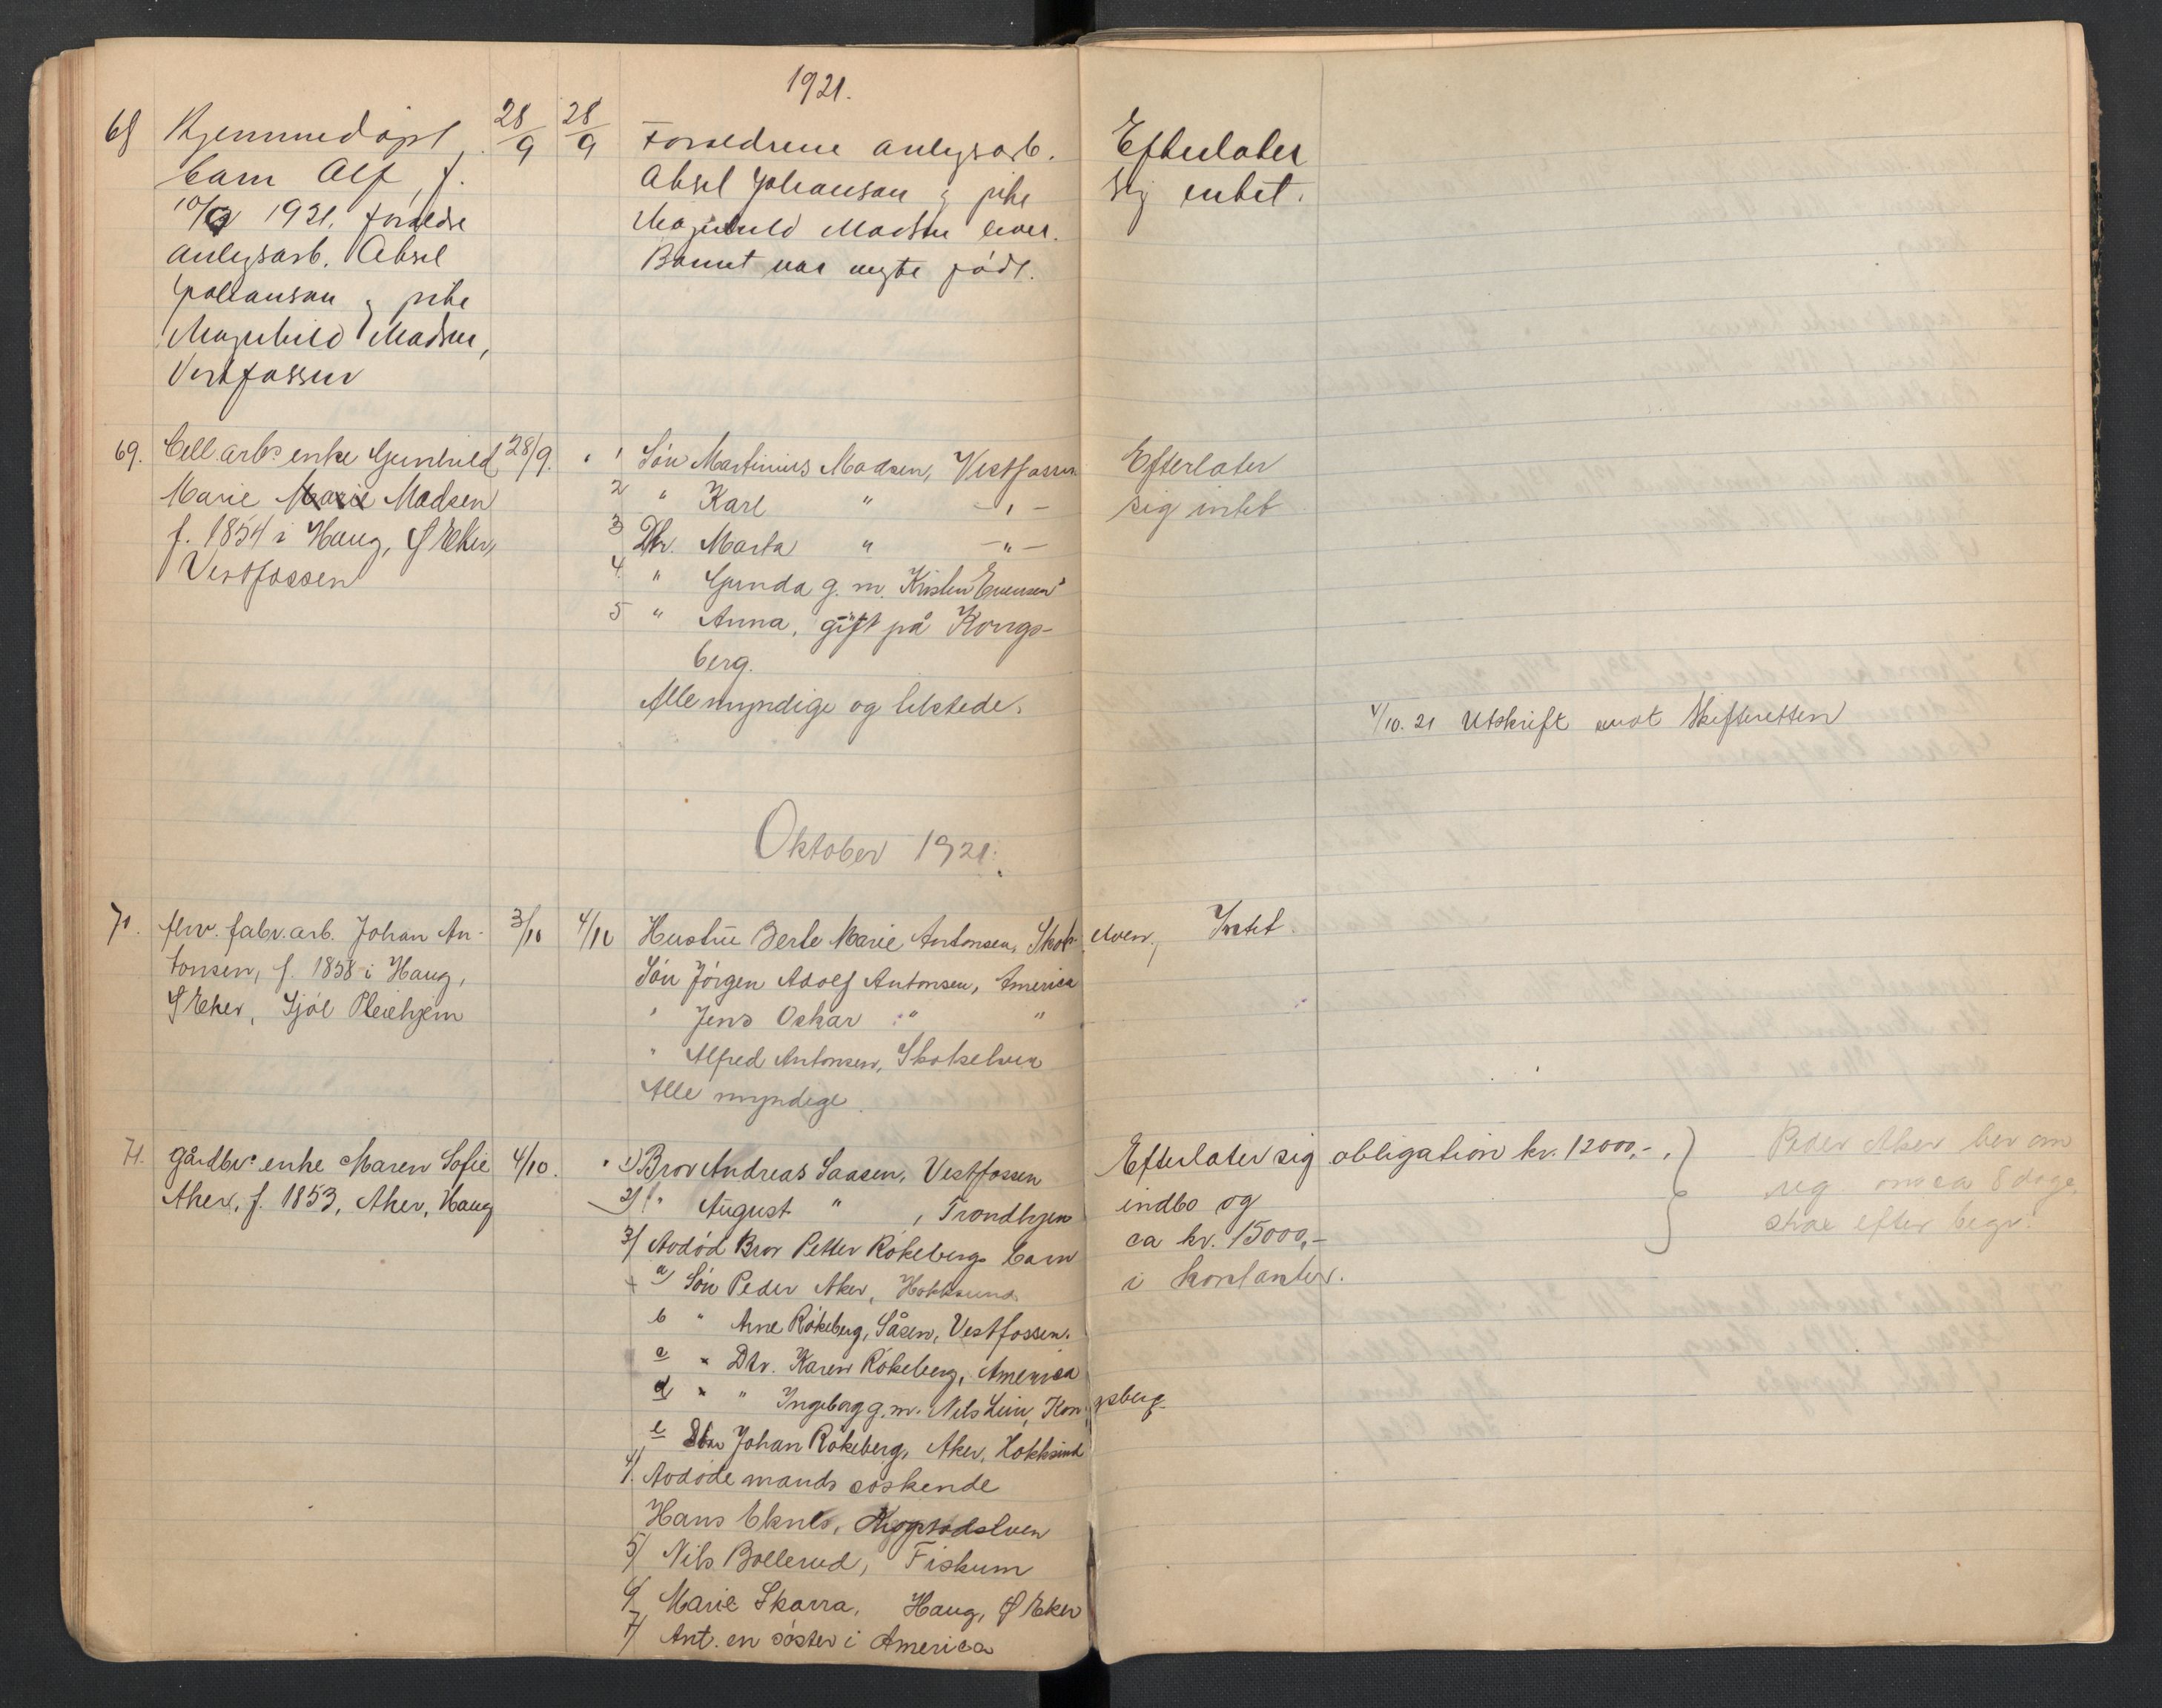 1921.
68 Hjemmedøpt 28/9 28/9 Forældrene anlegsarb. Efterlater
barn Alf, f. Aksel Johansen & pike sig intet.
10/9 1921. Foreldre Magnhild Madsen lever.
anlegsarb. Aksel Barnet var uegte født.
Johansen & pike
Magnhild Madsen,
Vestfossen
69. Cell.arbs enke Gunhild 28/9. " 1 Søn Martinius Madsen, Vestfossen Efterlater
Marie Marie Madsen 2 " Karl " — " — sig intet
f. 1854 i Haug, Ø Eker, 3 Dtr. Marta " — " —
Vestfossen 4. " Gunda g. m. Kristen Evensen "
5 " Anna, gift på Kongs-
berg.
Alle myndige og tilstede.
4/10. 21 Utskrift sendt Skifteretten
Oktober 1921.
70. fhv. fabr.arb. Johan An- 3/10 4/10 Hustru Berte Marie Antonsen, Skotselven, Intet.
tonsen, f. 1858 i Haug, Søn Jörgen Adolf Antonsen, America
Ø Eker, Sjöl Pleiehjem " Jens Oskar " "
" Alfred Antonsen, Skotselven
Alle myndige.
71. gårdbrs enke Maren Sofie 4/10. " 1) Bror Andreas Saasen, Vestfossen Efterlater sig obligation kr. 12000,-. } Peder Aker ber om
Aker, f. 1853, Aker, Haug 2) " August " , Trondhjem indbo og reg. om ca 8 dage,
3) Avdød Bror Petter Rökebergs barn ca kr. 15000,- efter begr.
a) Søn Peder Aker, Hokksund i kontanter.
b " Arne Rökeberg, Såsen, Vestfossen.
c " Dtr. Karen Rökeberg, America
d " " Ingeborg g. m. Nils Lein, Kongsberg
e Johan Rökeberg, Aker, Hokksund
4) Avdøde mands søskende
Hans Eknes,
5) Nils Bollerud, Fiskum
6) Marie Skarra, Haug, Ø Eker
7) Ant. en søster i America